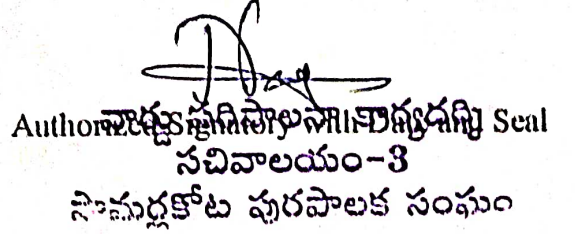 Authorized Signatory With Date and Seal
వార్డు పరిపాలనా కార్యదర్శి
సచివాలయం-3
సామర్లకోట పురపాలక సంఘం